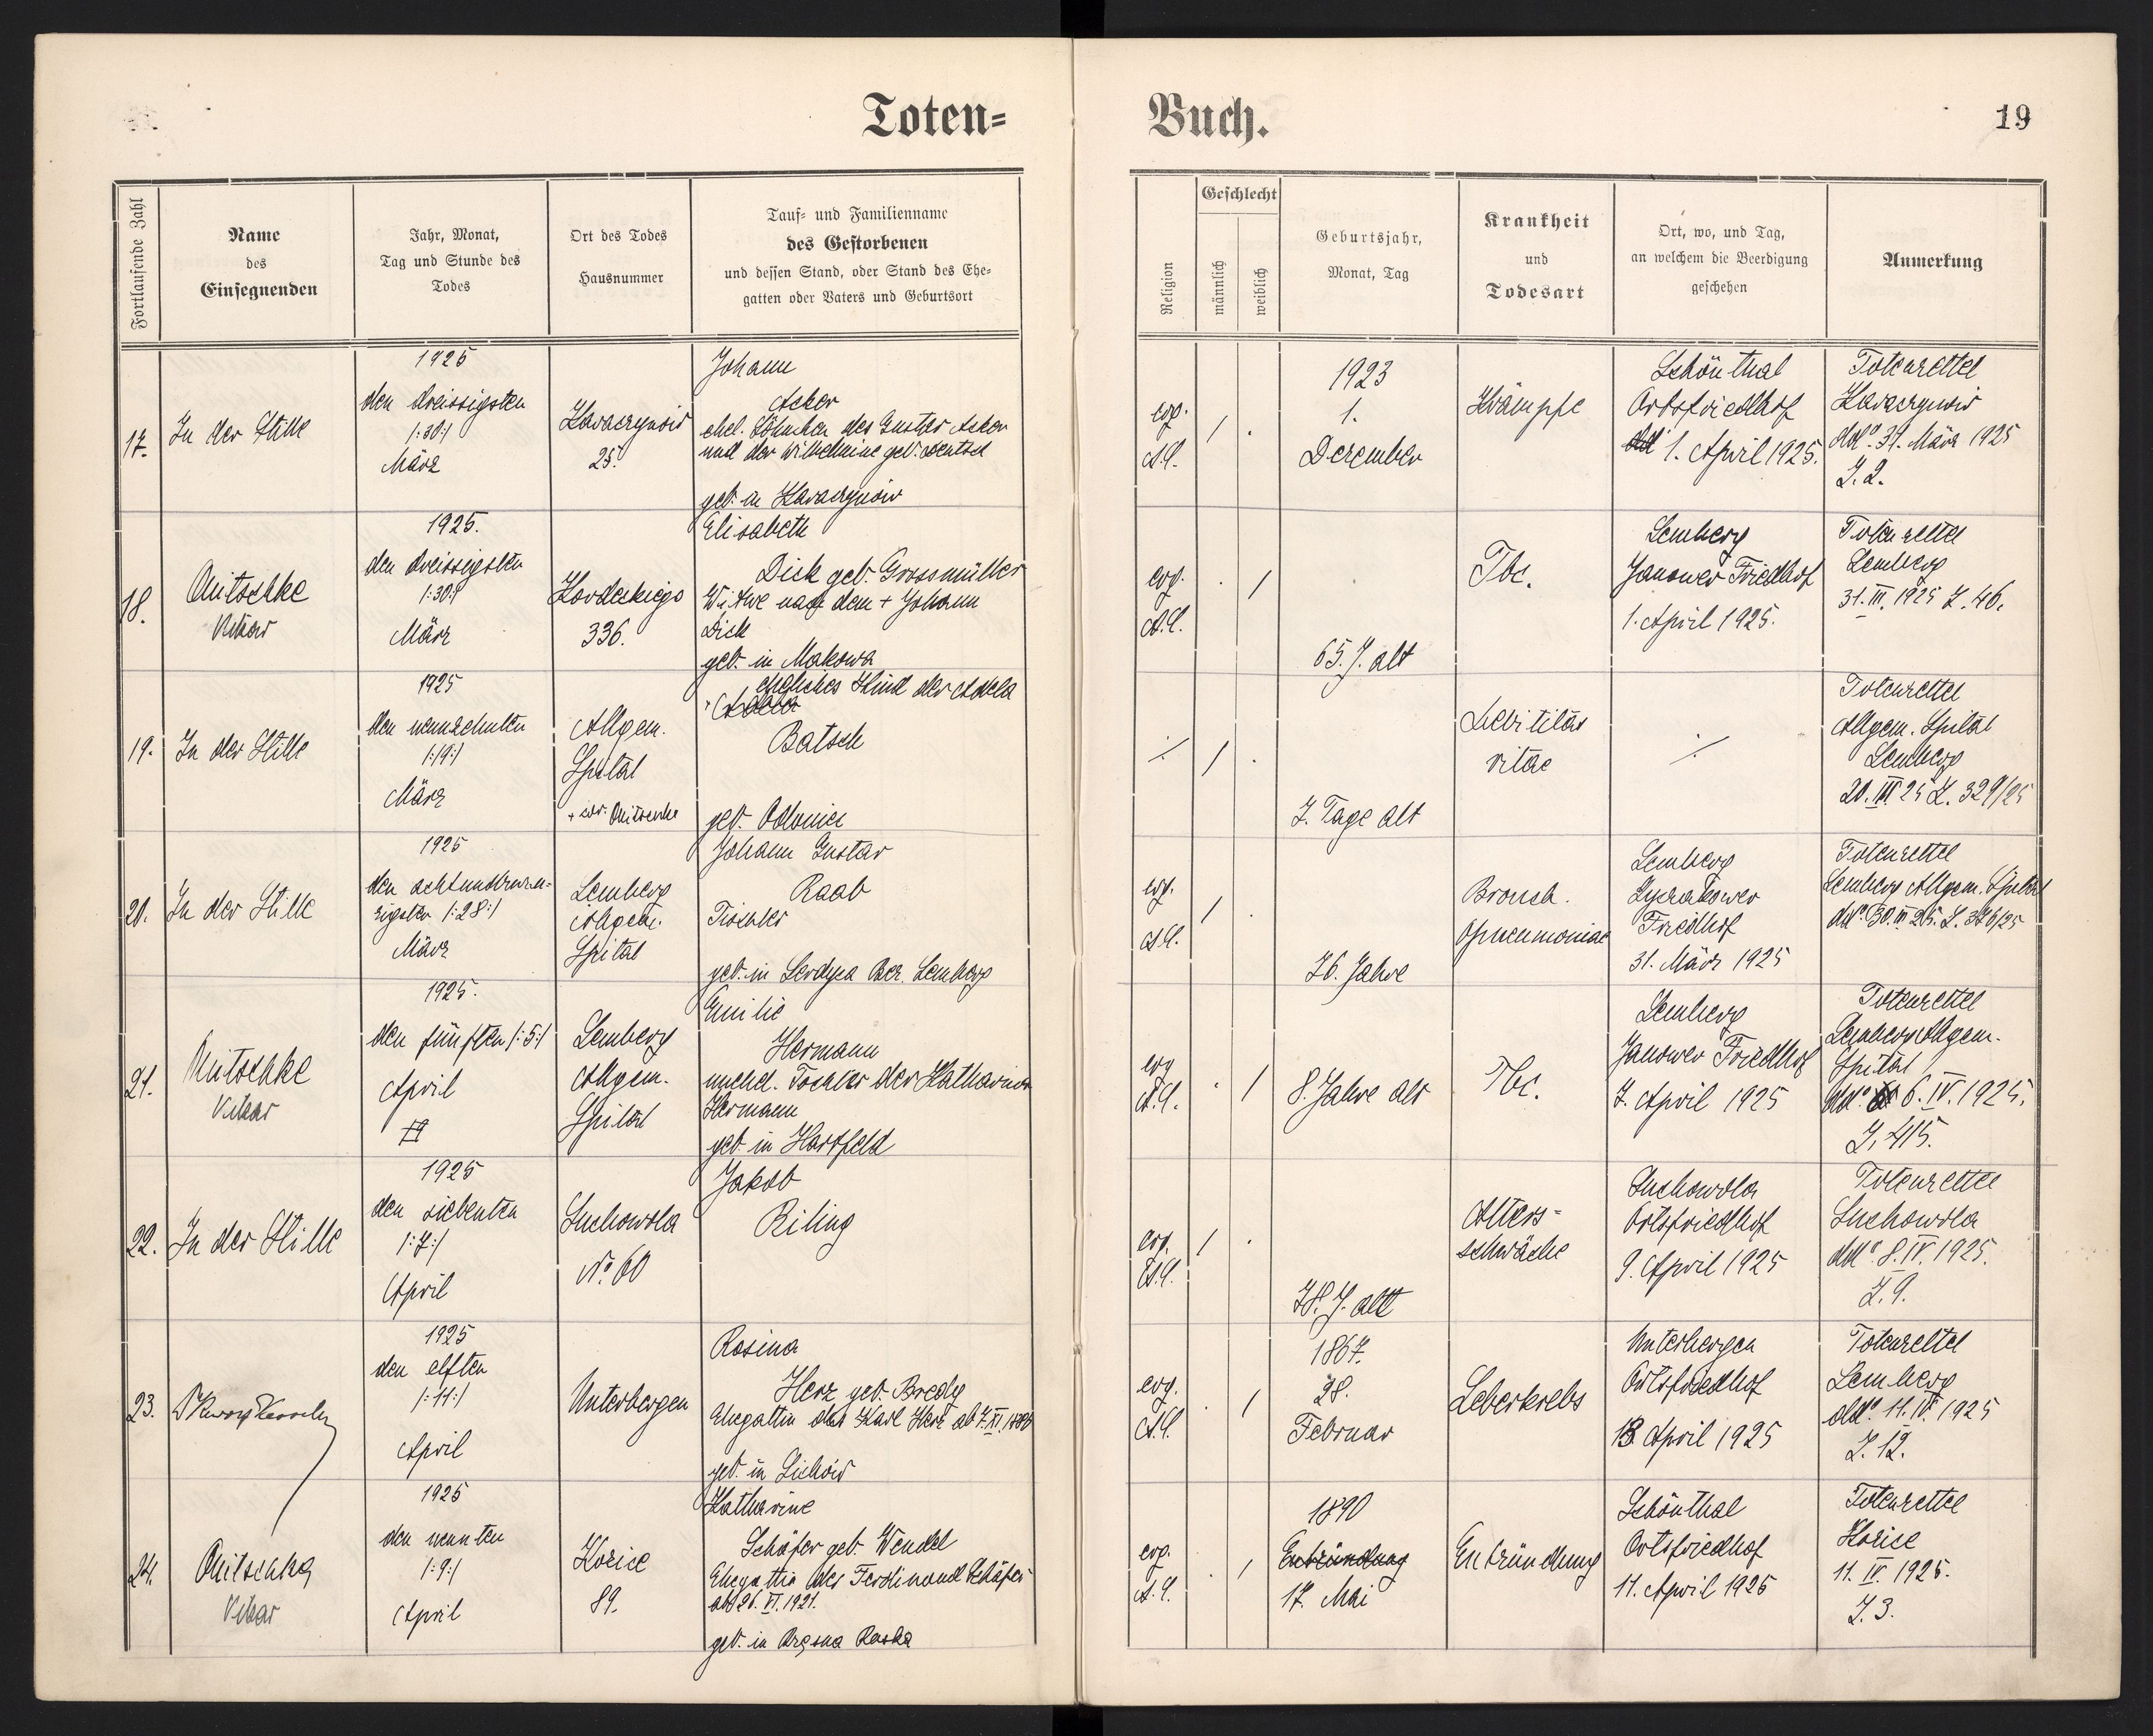 Toten=
Buch.
19
Fortlaufende Zahl
Name
des
Einsegnenden
Jahr, Monat,
Tag und Stunde des
Todes
Ort des Todes
Hausnummer
Tauf= und Familienname
des Gestorbenen
und dessen Stand, oder Stand des Ehe=
gatten oder Vaters und Geburtsort
Religion
Geschlecht
männlich
weiblich
Geburtsjahr,
Monat, Tag
Krankheit
und
Todesart
Ort, wo, und Tag,
an welchem die Beerdigung
geschehen
Anmerkung
17.
In der Stille
1925
den dreissigsten
1:30:1
März
25.
Johann
Acker
ehel. Söhnchen des Gustav Acker
und der Wilhelmine geb.
geb. in
evg.
A.C.
/ .
1923
1.
Dezember
Krämpfe
Schönthal
Ortsfriedhof
1. April 1925.
Totenzettel
ddo. 31. März 1925
Z. 2.
18.
Nitschke
Vikar
1925.
den dreissigsten
1:30:1
März
336.
Elisabeth
Dick geb. Grossmüller
Witwe nach dem + Johann
Dick
geb. in Makowa
evg.
A.C.
. /
65. J. alt
Tbc.
Lemberg
Janower Friedhof
1. April 1925.
Totenzettel
Lemberg
31. III. 1925 Z. 46.
19.
In der Stille
1925
den neunzehnten
1:19:1
März
Allgem.
Spital
eheliches Kind der Adela
Batsch
geb.
/ .
7. Tage alt
Debilitas
vitae
Totenzettel
Allgem. Spital
Lemberg
20. III. 25 Z. 329/25
20.
In der Stille
1925
den achtundzwan-
zigsten 1:28:1
März
Lemberg
Allgem.
Spital
Johann Gustav
Raab
Tischler
geb. in
Lemberg
evg.
A.C.
/ .
76. Jahre
Bronch.
pneumoniae
Lemberg
Friedhof
31. März 1925
Totenzettel
Lemberg Allgem. Spital
ddo. 30. III. 25. Z. 376/25
21.
Nitschke
Vikar
1925.
den fünften 1:5:1
April
Lemberg
Allgem.
Spital
Emilie
Hermann
unehel. Tochter der Katharina
Hermann
geb. in Hartfeld
evg
A.C.
. /
8. Jahre alt
Tbc.
Lemberg
Janower Friedhof
7. April 1925
Totenzettel
Lemberg Allgem.
Spital
ddo. 6. IV. 1925.
Z. 415.
22.
In der Stille
1925
den siebenten
1:7:1
April
Suchowola
No. 60
Jakob
Riling
evg.
A.C.
/ .
78. J. alt
Alters-
schwäche
Suchowola
Ortsfriedhof
9. April 1925
Totenzettel
Suchowola
ddo. 8. IV. 1925.
Z. 9.
23.
1925
den elften
1:11:1
April
Unterbergen
Rosina
Herz geb. Bredy
Ehegattin des Karl Herz
geb. in Sichów
evg.
A.C.
. /
1867.
28.
Februar
Leberkrebs
Unterbergen
Ortsfriedhof
13. April 1925
Totenzettel
Lemberg
ddo. 11. IV. 1925
Z. 12.
24.
Nitschke
Vikar
1925
den neunten
1:9:1
April
89.
Katharine
Schäfer geb. Wendel
Ehegattin des Ferdinand Schäfer
26. VI. 1921.
geb. in
evg.
A.C.
. /
1890
Entzündung
17. Mai
Entzündung
Schönthal
Ortsfriedhof
11. April 1925
Totenzettel
11. IV. 1925.
Z. 3.